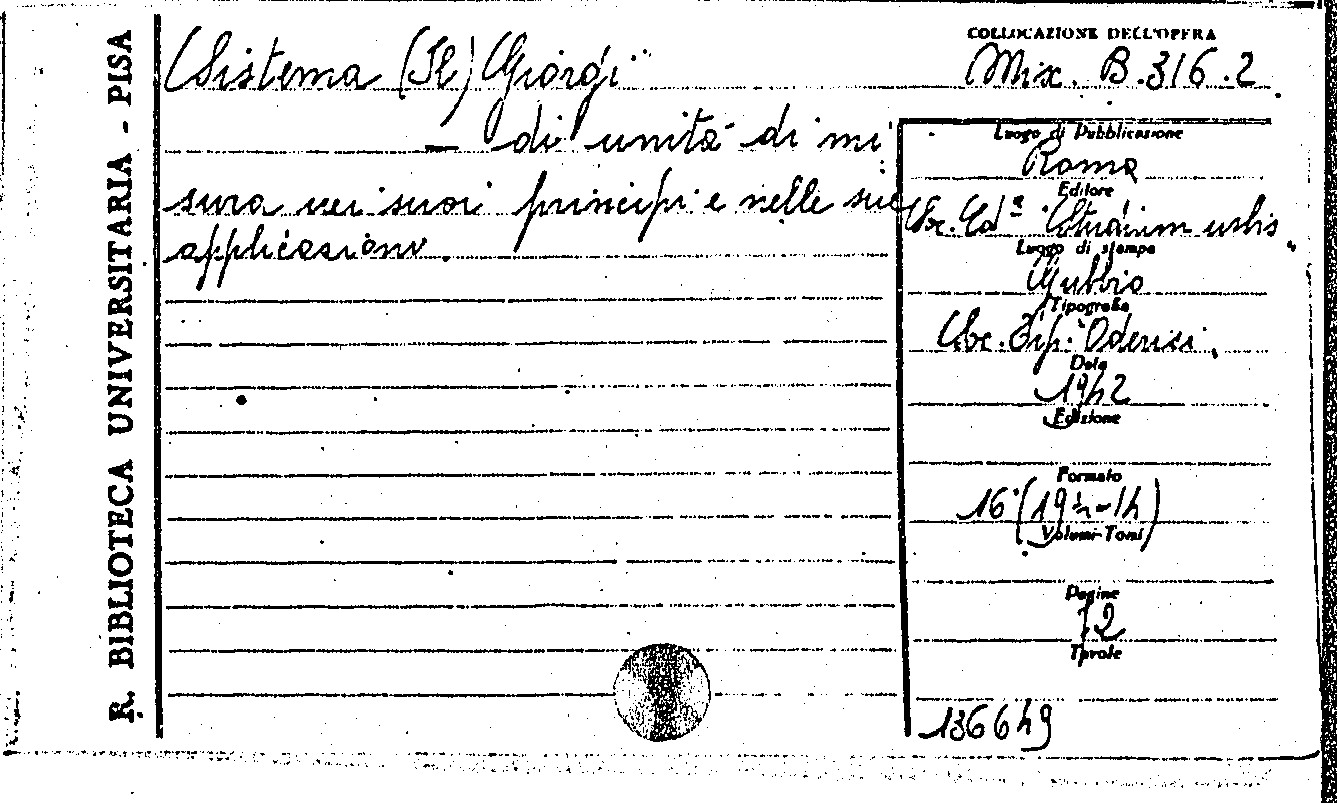 R. BIBLIOTECA UNIVERSITARIA - PISA
Sistema (Il) Giorgi
— di unità di mi
sura nei suoi principi e nelle sue
applicazioni.
COLLOCAZIONE DELL'OPERA
Misc. B.316.2
Luogo di Pubblicazione
Roma
Editore
Soc. Ed.ª Studium urbis
Luogo di stampa
Gubbio
Tipografia
Soc. Tip. Oderisi.
Data
1942
Edizione
Formato
16 (19½-14)
Volumi-Tomi
Pagine
72
Tavole
136649